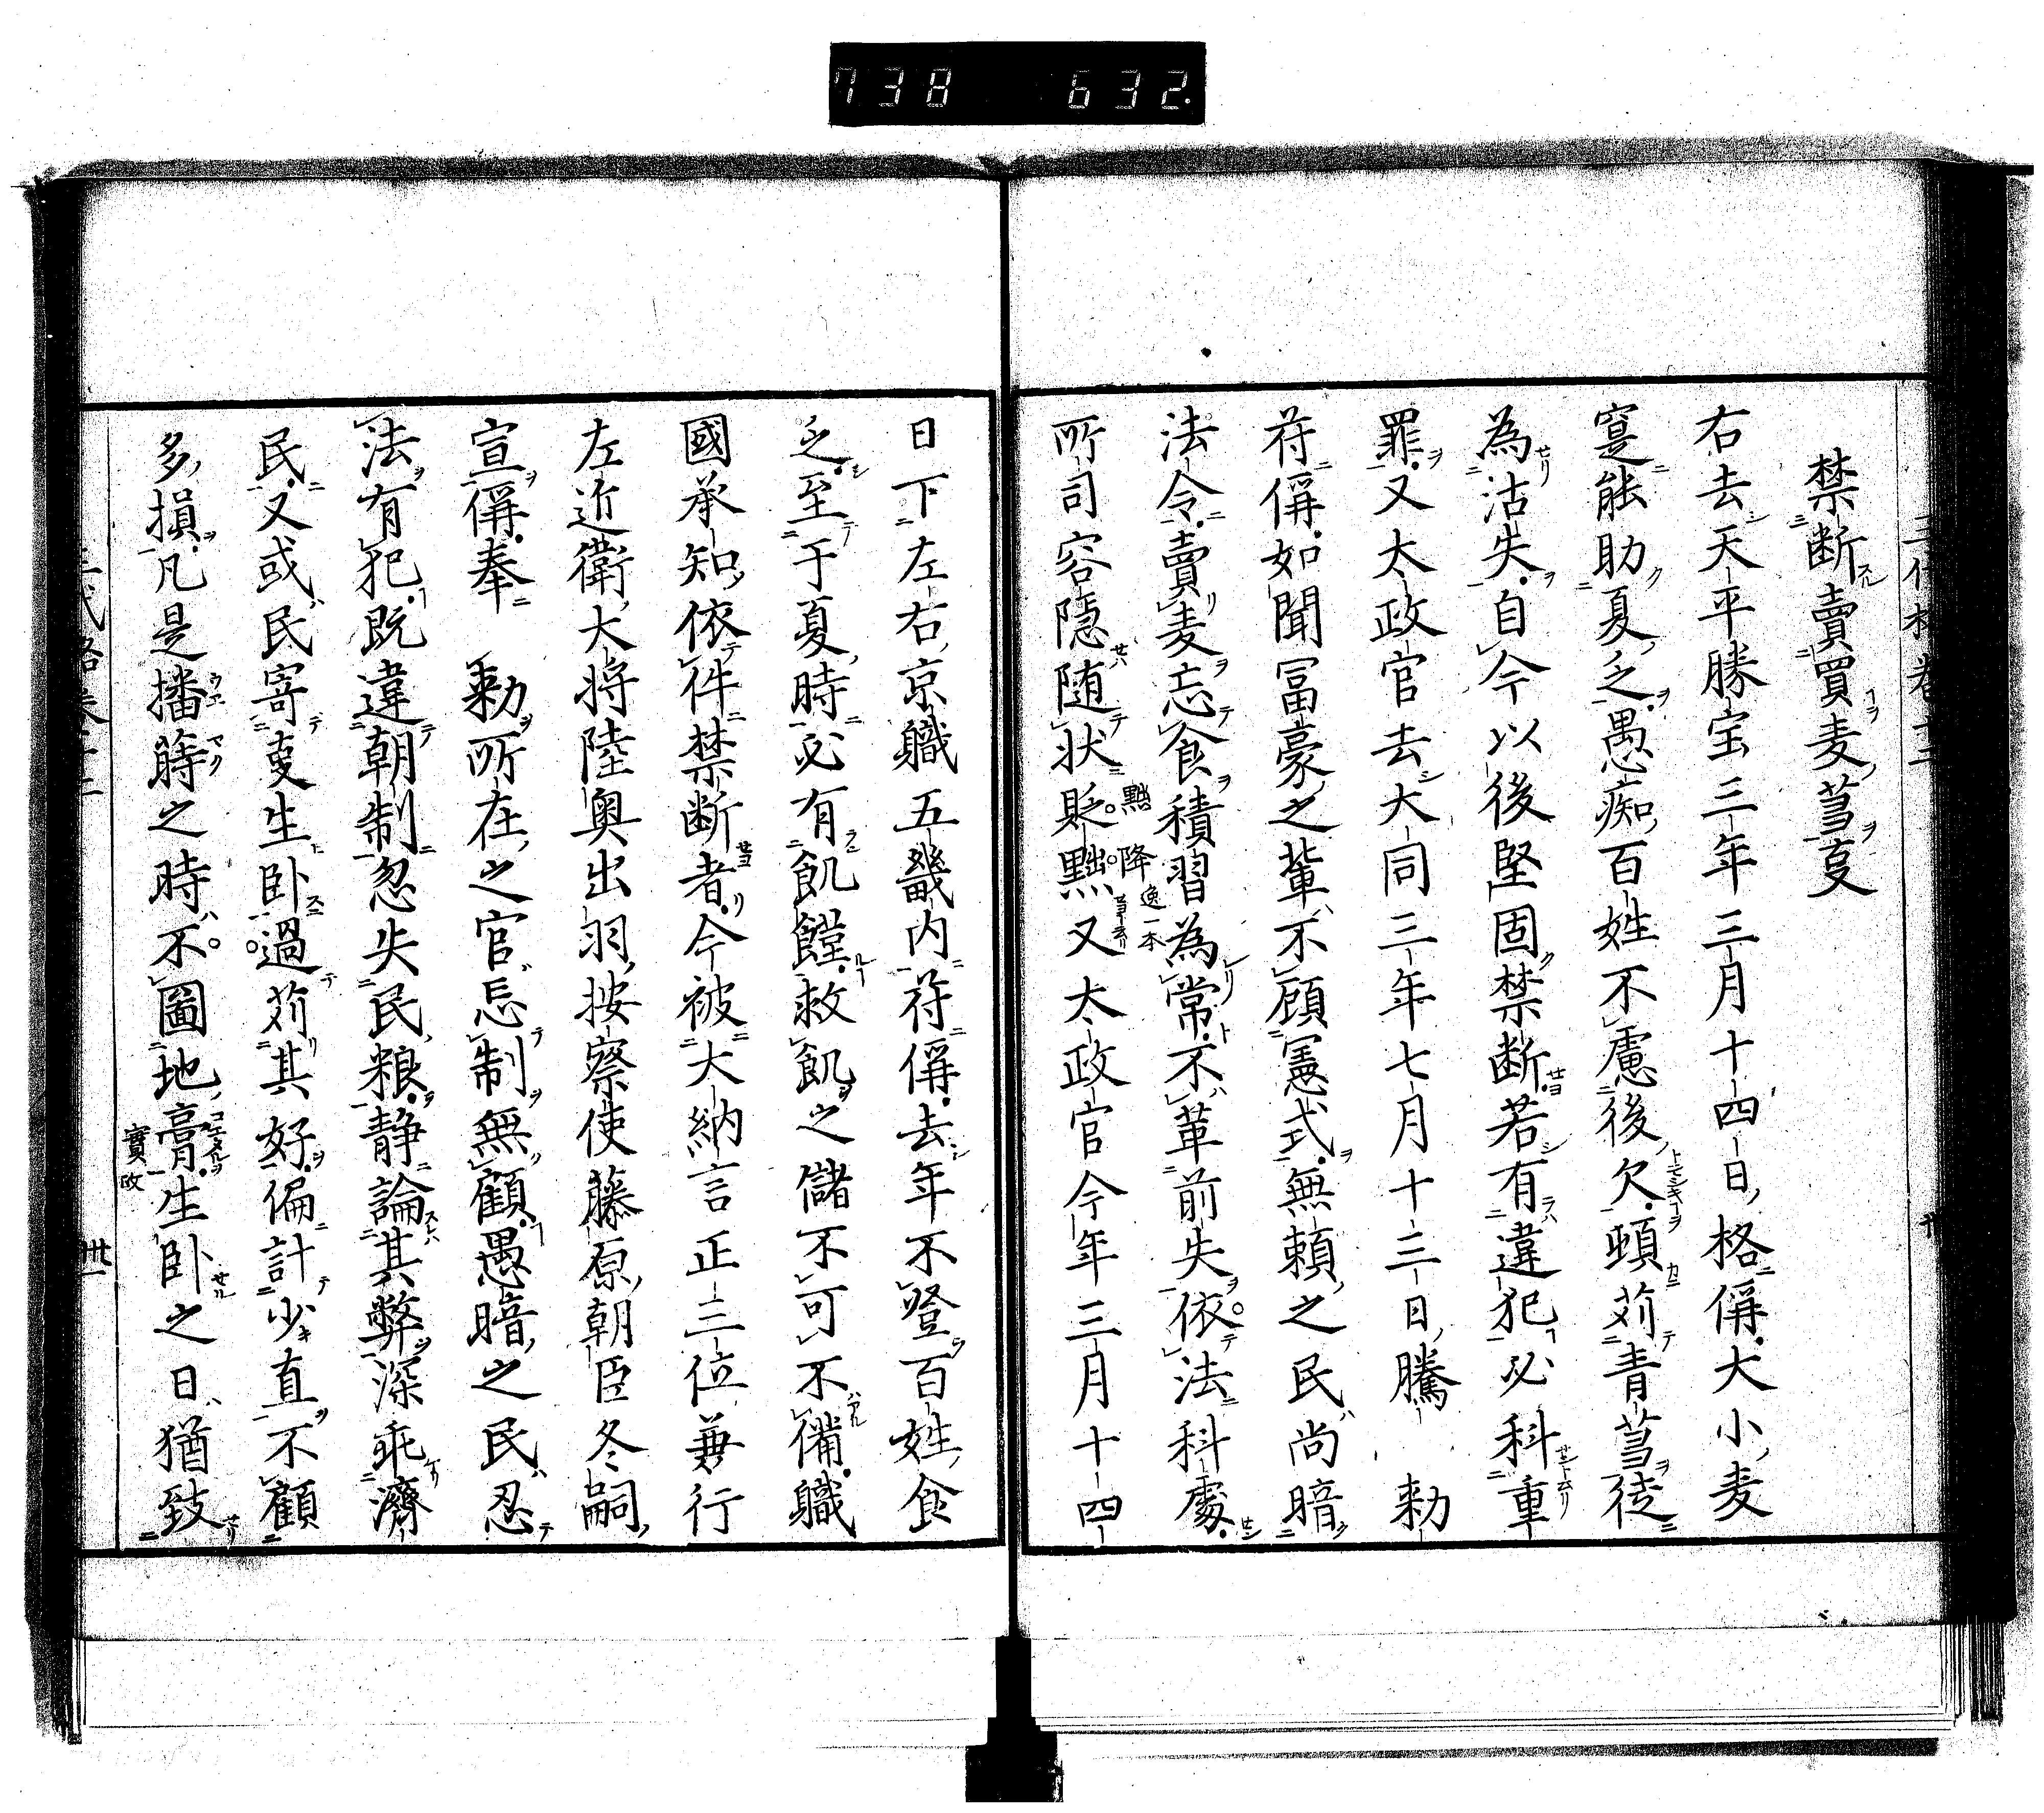 738 632.
禁断賣買麦蒭㕝
右去天平勝宝三年三月十四日格偁大小麦
寔能助夏乏愚痴百姓不慮後欠頓苅青蒭徒
為沽失自今以後堅固禁断若有違犯必科重
罪又太政官去大同三年七月十三日騰 勅
苻偁如聞冨豪之輩不顧憲式無頼之民尚暗
法令賣麦忘食積習為常不革前失依法科處
所司容隠随状貶黜又太政官今年三月十四
黜 降 逸一本
日下左右京職五畿内苻偁去年不登百姓食
乏至于夏時必有飢饉救飢之儲不可不備職
國承知依件禁断者今被大納言正三位兼行
左近衛大将陸奥出羽按察使藤原朝臣冬嗣
宣偁奉 勅所在之官忘制無顧愚暗之民忍
法有犯既違朝制忽失民粮静論其弊深乖濟
民又或民寄㕝生卧過苅其好偏計少直不顧
多損凡是播蒔之時不圖地膏生卧之日猶致
實改